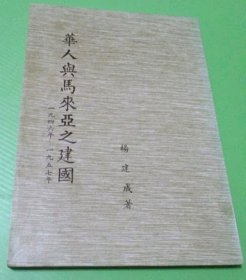 華人與馬來亞之建國
一九四六年　一九五七年
楊建成著